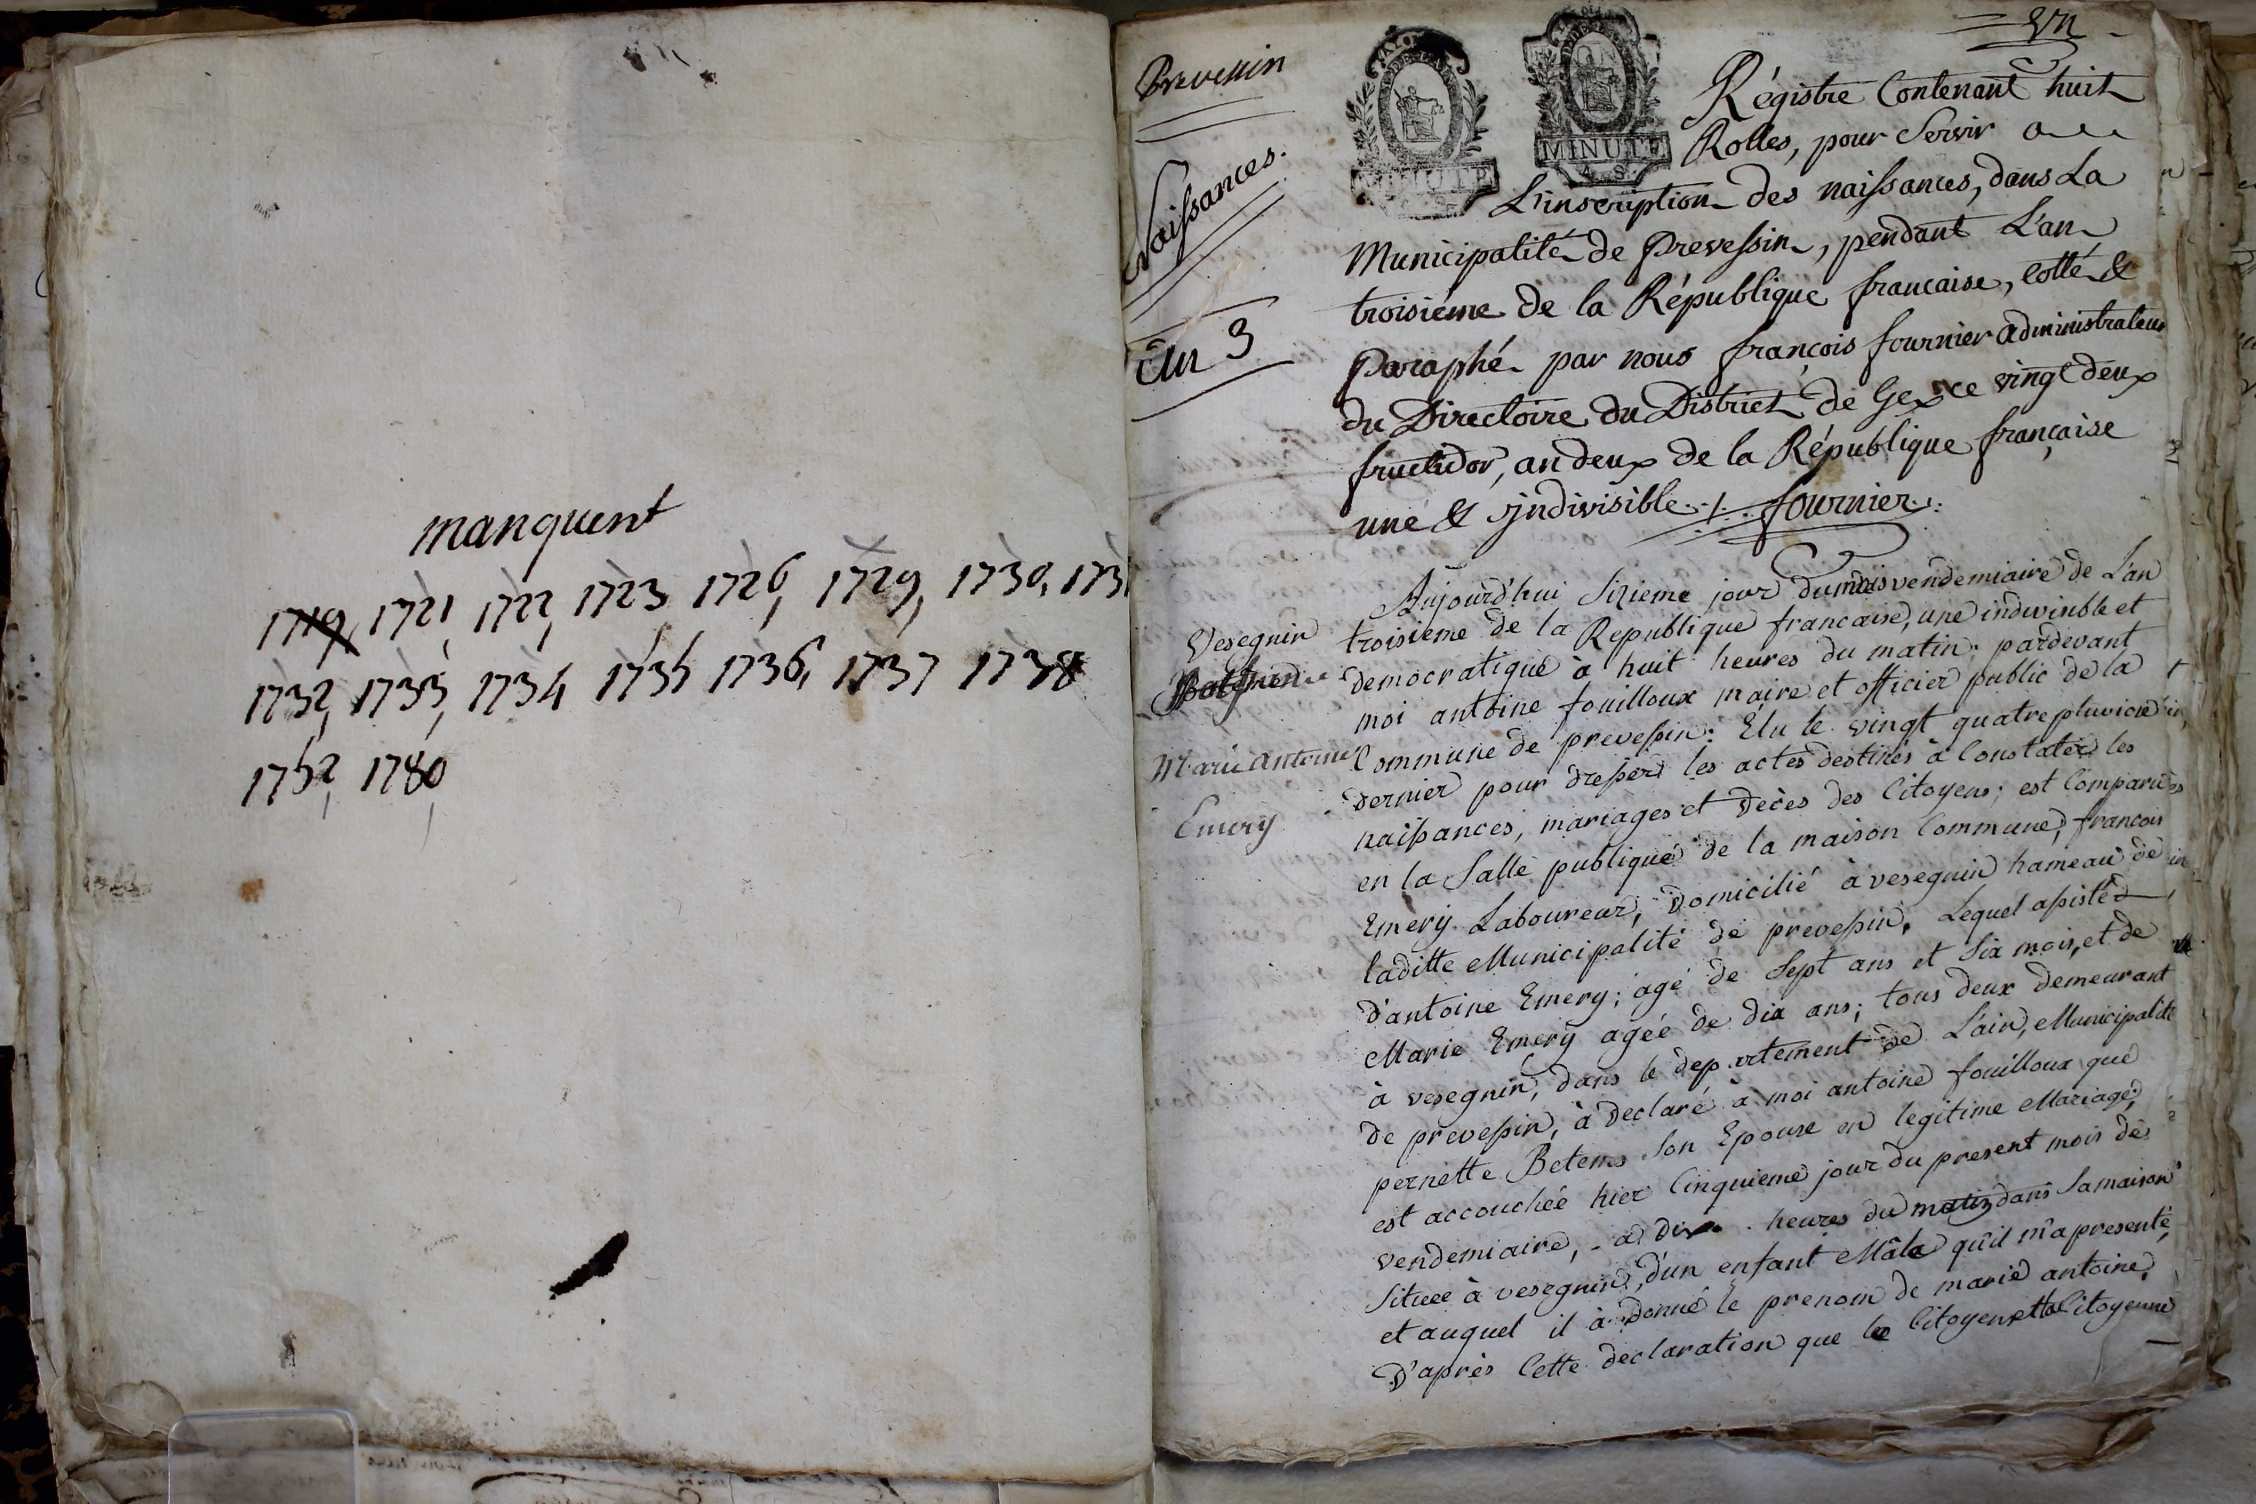 manquent
1719, 1721, 1722, 1723 1726, 1729, 1730, 173
1732, 1733, 1734 1735 1736, 1737 1738
1752, 1780,
Prevessin
Naissances.
An 3
un
MINUTE
MINUTE
4. S.
Régistre Contenant huit
Rolles, pour Servir a
L'inscription des naissances, dans La
Municipalité de Prevessin, pendant L'an
troisiéme de la République francaise, Cotté &
Paraphé par nous françois fournier administrateur
du Directoire du District de Gex ce vingt deux
fructidor, an deux de la République française
une & jndivisible ./. fournier
Vesegnin
Marie Antoine
Emery
Aujourd'hui Sizieme jour du mois vendemiaire de L'an
troisieme de la Republique francaise, une indivisible et
democratique à huit heures du matin; pardevant
moi antoine fouilloux maire et officier public de la
Commune de prevessin: Elu le vingt quatre pluviose
dernier pour dresser les actes destinés à Constater les
naissances, mariages et decès des Citoyens; est Comparu
en la Salle publique de la maison Commune, francois
Emery Laboureur, domicilié à vesegnin hameau de
laditte Municipalité de prevessin, Lequel assisté
d'antoine Emery; agé de Sept ans et Six mois, et de
Marie Emery agée de dix ans; tous deux demeurant
à vesegnin, dans le departement de L'ain, Municipalité
de prevessin, à declaré à moi antoine fouilloux que
pernette Betems Son Epouse en legitime Mariage,
est accouchée hier Cinquieme jour du present mois de
vendemiaire, - a dix heures du matin dans Sa maison
Situee à vesegnin, d'un enfant Mâle qu'il m'a presenté,
et auquel il à donné le prenom de marie antoine,
D'après Cette declaration que le Citoyen et la Citoyenne